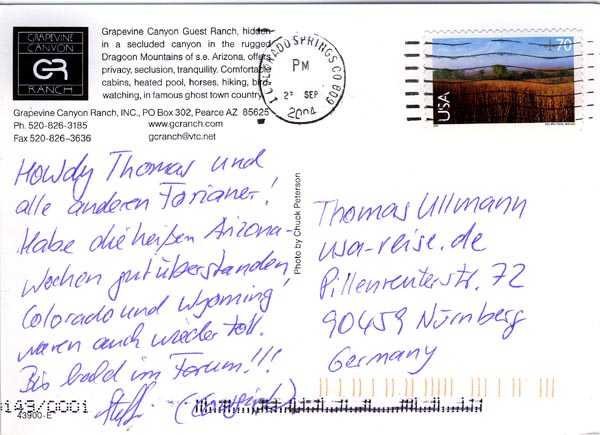 GRAPEVINE
CANYON
GR
RANCH
Grapevine Canyon Guest Ranch, hidden
in a secluded canyon in the rugged
Dragoon Mountains of s.e. Arizona, offers
privacy, seclusion, tranquility. Comfortable
cabins, heated pool, horses, hiking, bird
watching, in famous ghost town country.
Grapevine Canyon Ranch, INC., PO Box 302, Pearce AZ 85625
Ph. 520-826-3185 www.gcranch.com
Fax 520-826-3636 gcranch@vtc.net
COLORADO SPRINGS CO 809
PM
SEP
2004
70
USA
Howdy Thomas und
alle anderen Forianer!
Habe die heißen Arizona-
wochen gut überstanden,
Colorado und Wyoming
waren auch wieder toll.
Bis bald im Forum!!!
Steffi
43900-E
Photo by Chuck Peterson
Thomas Ullmann
usa-reise.de
Pillenreuterstr. 72
90459 Nürnberg
Germany